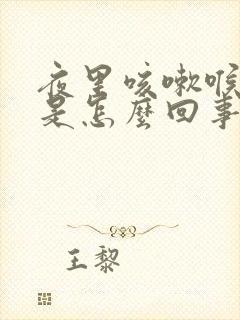 夜里咳嗽喉
是怎麼回事
王黎